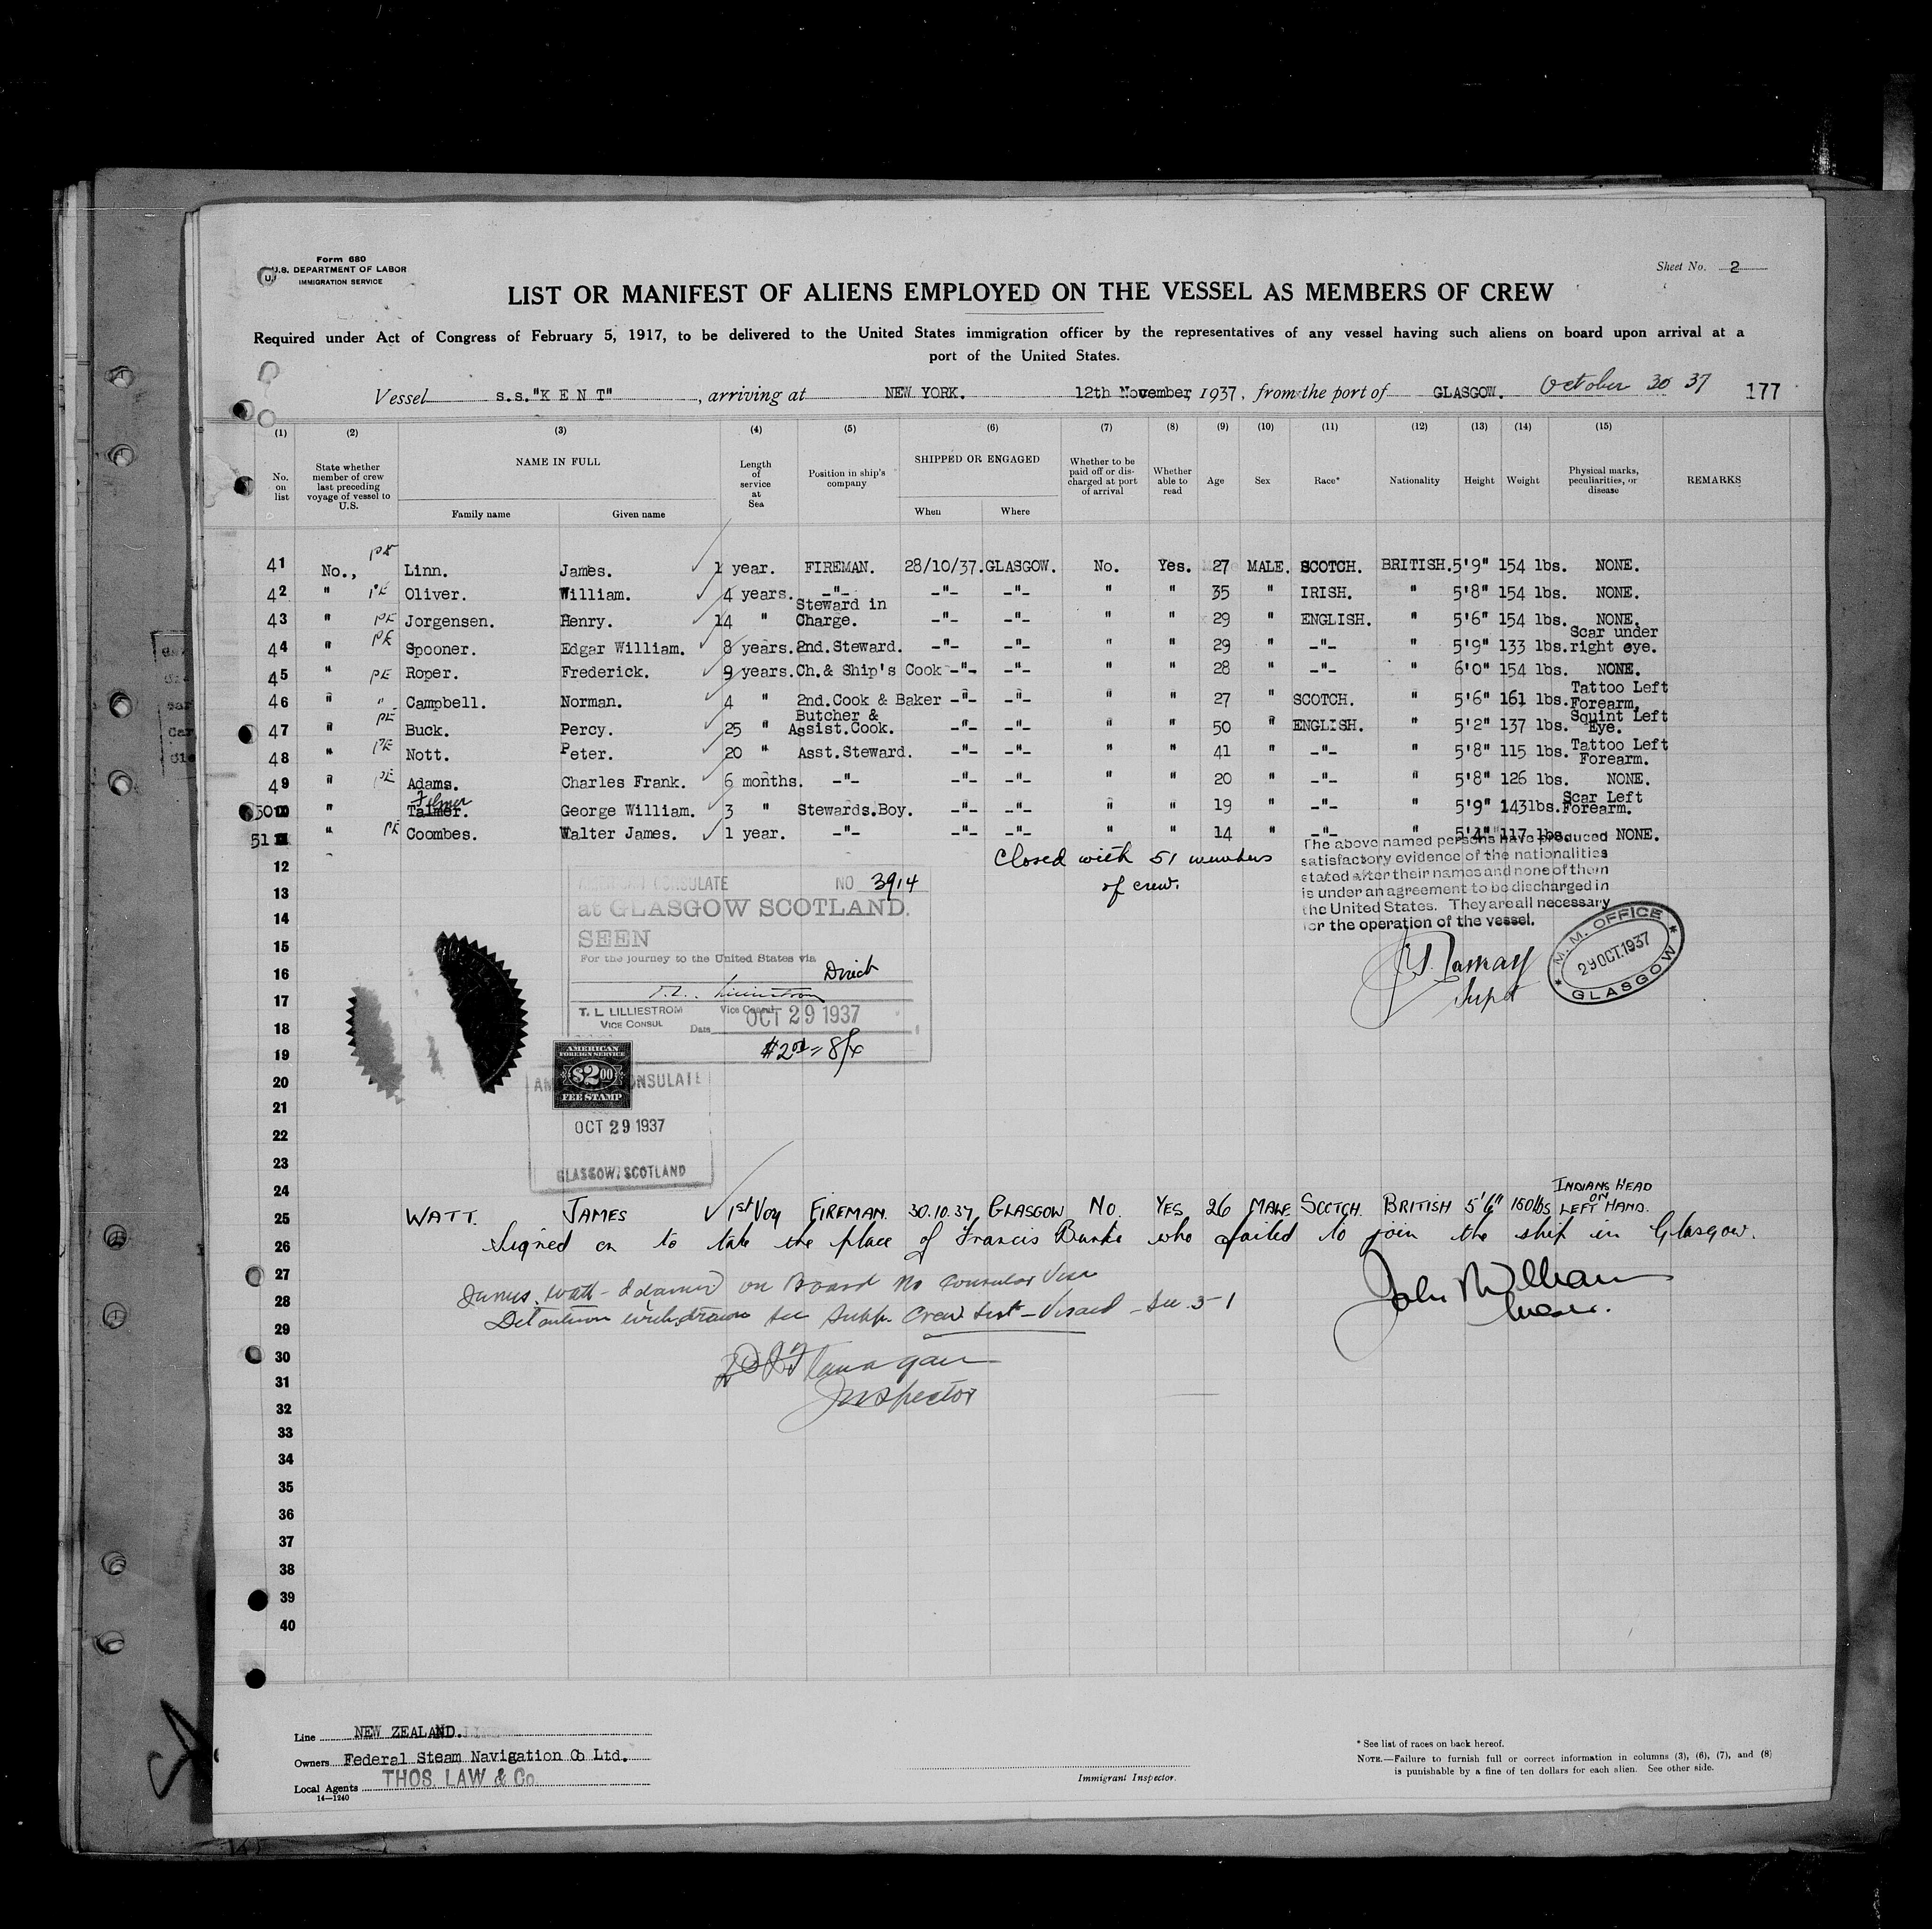 Form 680
U.S. DEPARTMENT OF LABOR
IMMIGRATION SERVICE
Sheet No. 2
LIST OR MANIFEST OF ALIENS EMPLOYED ON THE VESSEL AS MEMBERS OF CREW
Required under Act of Congress of February 5, 1917, to be delivered to the United States immigration officer by the representatives of any vessel having such aliens on board upon arrival at a
port of the United States.
Vessel s.s."K E N T", arriving at NEW YORK. 12th November, 1937, from the port of GLASGOW. October 30 37 177
(1) (2) (3) (4) (5) (6) (7) (8) (9) (10) (11) (12) (13) (14) (15)
No. on list
State whether member of crew last preceding voyage of vessel to U.S.
NAME IN FULL
Family name
Given name
Length of service at Sea
Position in ship's company
SHIPPED OR ENGAGED
When
Where
Whether to be paid off or discharged at port of arrival
Whether able to read
Age
Sex
Race*
Nationality
Height
Weight
Physical marks, peculiarities, or disease
REMARKS
41 No., PE Linn. James. 1 year. FIREMAN. 28/10/37. GLASGOW. No. Yes. 27 MALE. SCOTCH. BRITISH. 5'9" 154 lbs. NONE.
42 " PE Oliver. William. 4 years. -"- -"- -"- " " 35 " IRISH. " 5'8" 154 lbs. NONE.
43 " PE Jorgensen. Henry. 14 " Steward in Charge. -"- -"- " " 29 " ENGLISH. " 5'6" 154 lbs. NONE.
44 " PE Spooner. Edgar William. 8 years. 2nd.Steward. -"- -"- " " 29 " -"- " 5'9" 133 lbs. Scar under right eye.
45 " PE Roper. Frederick. 9 years. Ch.& Ship's Cook -"- -"- " " 28 " -"- " 6'0" 154 lbs. NONE.
46 " " Campbell. Norman. 4 " 2nd.Cook & Baker -"- -"- " " 27 " SCOTCH. " 5'6" 161 lbs. Tattoo Left Forearm.
47 " PE Buck. Percy. 25 " Butcher & Assist.Cook. -"- -"- " " 50 " ENGLISH. " 5'2" 137 lbs. Squint Left Eye.
48 " PE Nott. Peter. 20 " Asst.Steward. -"- -"- " " 41 " -"- " 5'8" 115 lbs. Tattoo Left Forearm.
49 " PE Adams. Charles Frank. 6 months. -"- -"- -"- " " 20 " -"- " 5'8" 126 lbs. NONE.
50 " Talmer. Filmer George William. 3 " Stewards.Boy. -"- -"- " " 19 " -"- " 5'9" 143lbs. Scar Left Forearm.
51 " PE Coombes. Walter James. 1 year. -"- -"- -"- " " 14 " -"- " 5'4" 117 lbs. NONE.
12
Closed with 51 members
of crew.
The above named persons have produced
satisfactory evidence of the nationalities
stated after their names and none of them
is under an agreement to be discharged in
the United States. They are all necessary
for the operation of the vessel.
Supt
M. M. OFFICE
29 OCT. 1937
GLASGOW
AMERICAN CONSULATE NO 3914
at GLASGOW SCOTLAND.
SEEN
For the journey to the United States via Direct
T. L. LILLIESTROM
VICE CONSUL
Vice Consul
Date OCT 29 1937
AMERICAN
FOREIGN SERVICE
$2.00
FEE STAMP
AMERICAN CONSULATE
OCT 29 1937
GLASGOW, SCOTLAND
13
14
15
16
17
18
19
20
21
22
23
24
25 WATT. JAMES 1st Voy FIREMAN. 30.10.37. GLASGOW NO. YES 26 MALE SCOTCH. BRITISH 5'6" 150lbs INDIANS HEAD ON LEFT HAND.
26 Signed on to take the place of Francis Burke who failed to join the ship in Glasgow.
27 James Watt - Detained on Board No Consular Visa
28 Detention withdrawn see Supp. Crew List - Visaed - See 3-1
John Williams
29
30 Flanagan
31 Inspector
32
33
34
35
36
37
38
39
40
Line NEW ZEALAND.
Owners Federal Steam Navigation Co Ltd.
Local Agents THOS. LAW & Co
14—1240
Immigrant Inspector.
* See list of races on back hereof.
NOTE.—Failure to furnish full or correct information in columns (3), (6), (7), and (8)
is punishable by a fine of ten dollars for each alien. See other side.